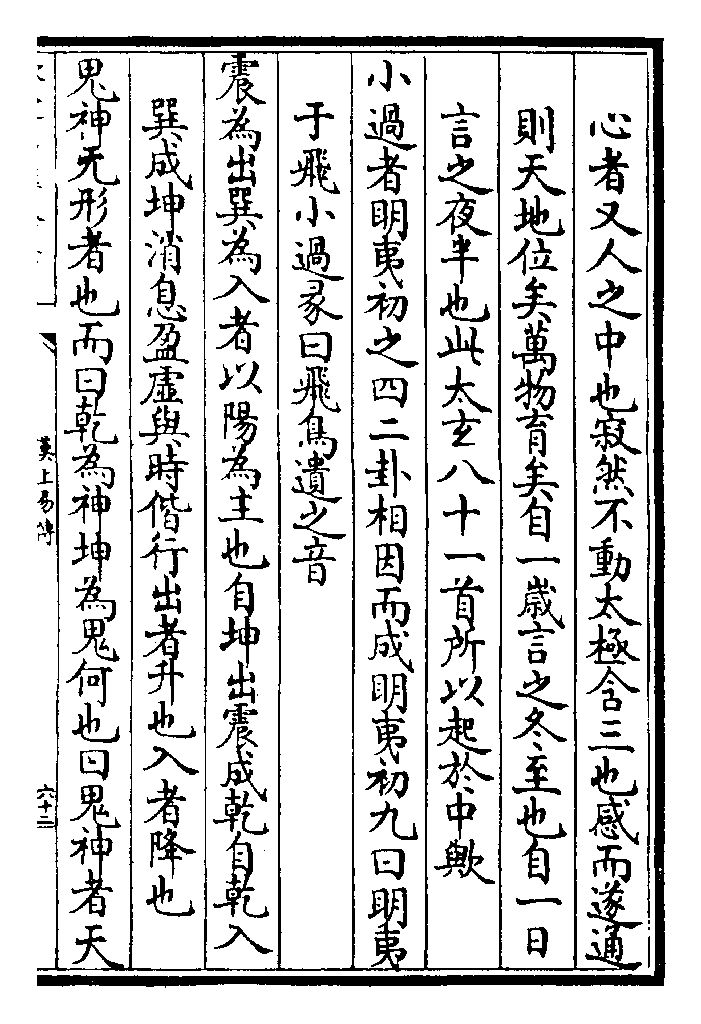 心者又人之中也寂然不動太極含三也感而遂通
則天地位矣萬物育矣自一歳言之冬至也自一日
言之夜半也此太玄八十一首所以起於中歟
小過者明夷初之四二卦相因而成明夷初九曰明夷
于飛小過彖曰飛鳥遺之音
震為出巽為入者以陽為主也自坤出震成乾自乾入
巽成坤消息盈虚與時偕行出者升也入者降也
鬼神无形者也而曰乾為神坤為鬼何也曰鬼神者天
漢上易傳
六十二